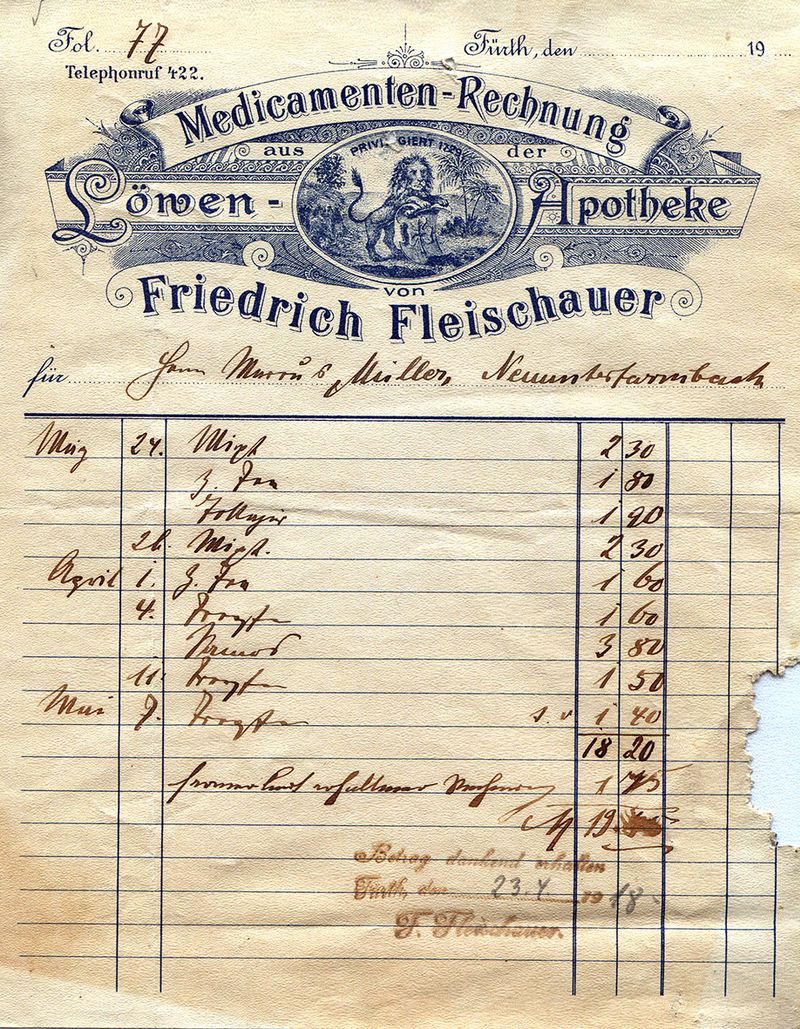 Fol. 77
Fürth, den 19
Telephonruf 422.
Medicamenten-Rechnung
aus der
PRIVILEGIERT
Löwen-Apotheke
von
Friedrich Fleischauer
für Herrn Müller, Neuunterfarrnbach
24. Mixt 2 30
1 80
1 90
26. Mixt. 2 30
April 1. 1 60
4. Tropfen 1 60
3 80
11. Tropfen 1 50
Mai 7. Tropfen 1 40
18 20
laut erhaltener Rechnung 1 75
M 19
Betrag dankend erhalten
Fürth, den 23.4 1918.
F. Fleischauer.